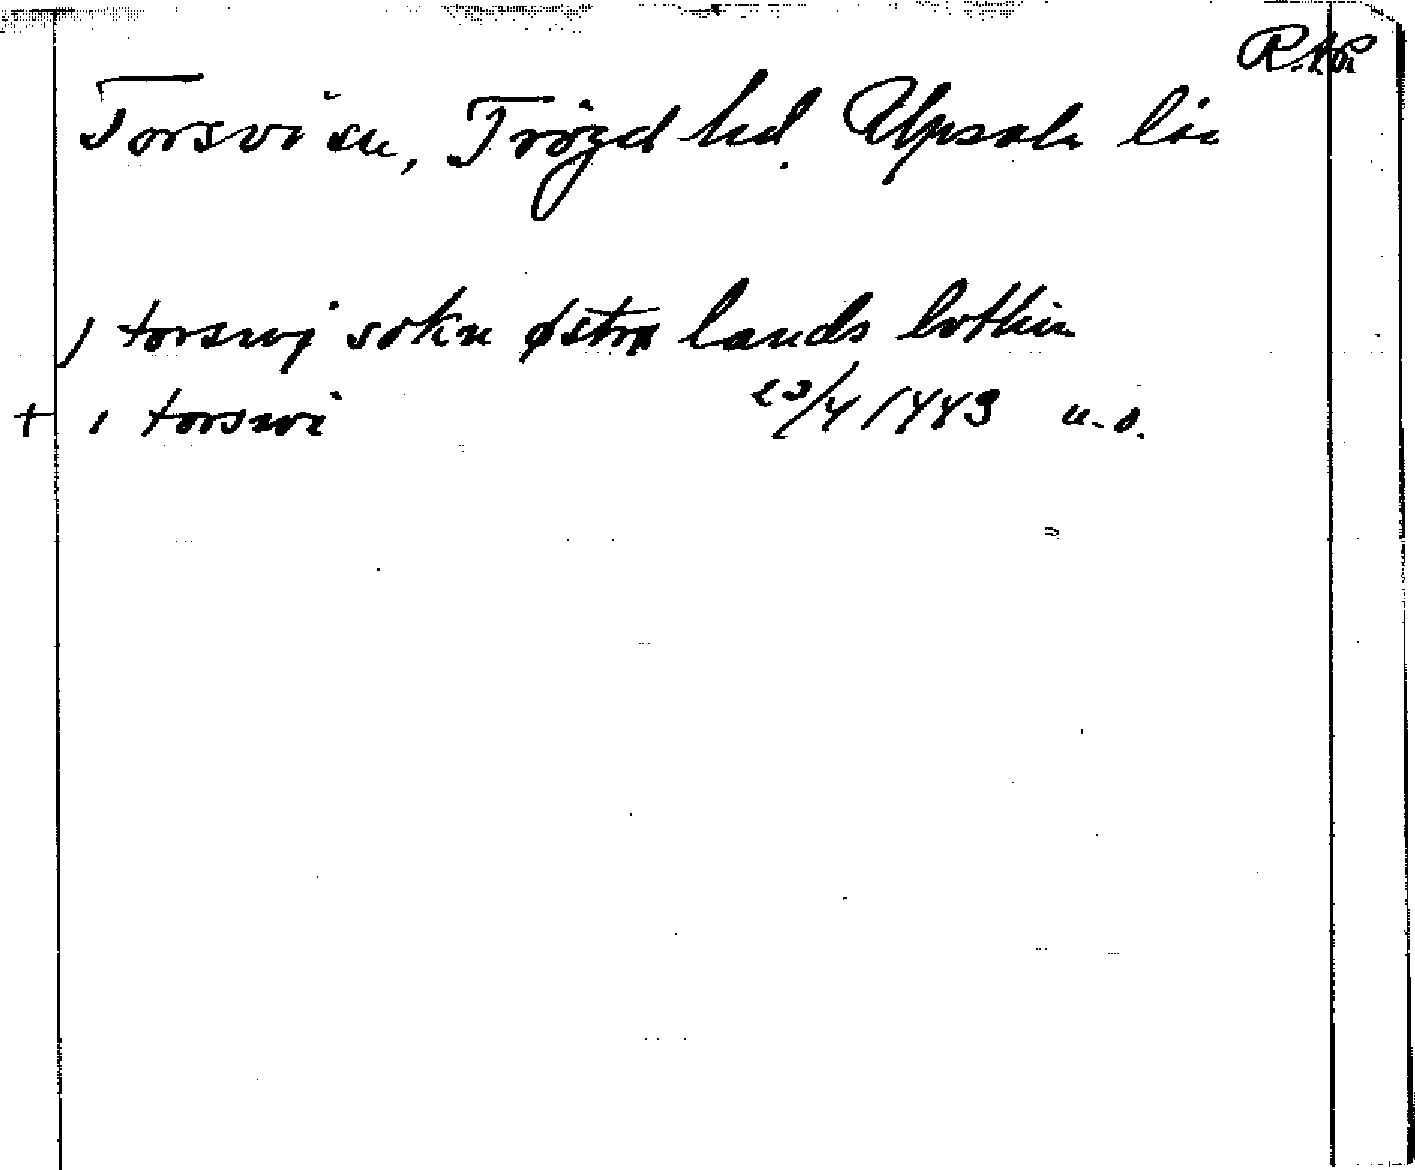 R.A.P.
Torsvi sn, Trögd hd. Upsala län
j torswj sokn østra lands lothin
+ i torswi 23/4 1443 u.o.